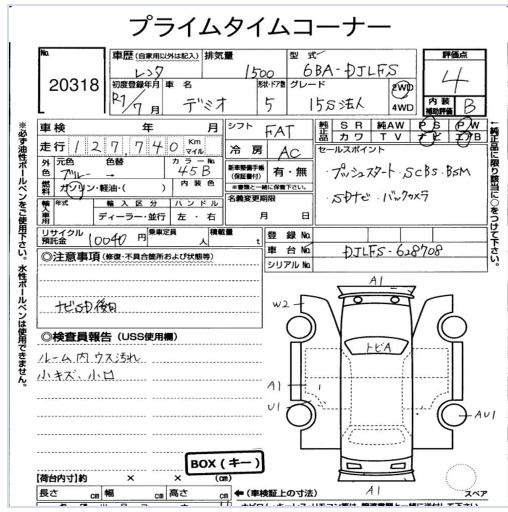 プライムタイムコーナー
No. 20318
車歴(自家用以外は記入) レンタ
排気量 1500
型式 6BA-DJLFS
評価点 4
初度登録年月 R7/7月
車名 デミオ
形状・ドア数 5
グレード 15S法人
2WD
4WD
内装補助評価 B
車検 年 月
走行 127,740 Km マイル
シフト FAT
純正品 SR 純AW PS PW
カワ TV ナビ エアB
外色 元色 ブルー → 色替 カラーNo. 45B
冷房 AC
セールスポイント
プッシュスタート.SCBS.BSM
SDナビ.バックカメラ
燃料 ガソリン・軽油・( ) 内装色
新車整備手帳(保証書付) 有・無
※書類と一緒に保管下さい。
輸入車用 年式 輸入区分 ハンドル
ディーラー・並行 左・右
名義変更期限
月 日
リサイクル預託金 10040円 乗車定員 人 積載量 t
登録No.
車台No. DJLFS-628708
シリアルNo.
◎注意事項(修復・不具合箇所および状態等)
ナビSD後日
◎検査員報告(USS使用欄)
ルーム内ウス汚れ
小キズ、小凹
BOX(キー)
A1
W2
トビA
A1
U1
AU1
A1
スペア
【荷台内寸】約 × × (cm)
長さ cm 幅 cm 高さ cm
←(車検証上の寸法)
※必ず油性ボールペンをご使用下さい。水性ボールペンは使用できません。
←純正品に限り該当に○をつけて下さい。